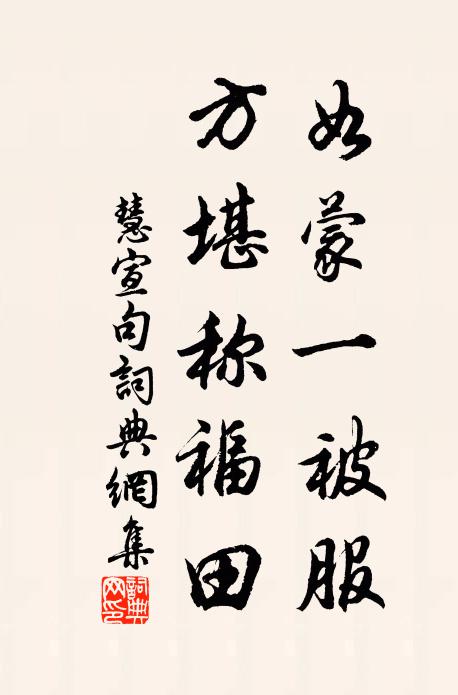 如蒙一被服
方堪称福田
慧宣句詞典網集
詞典網印